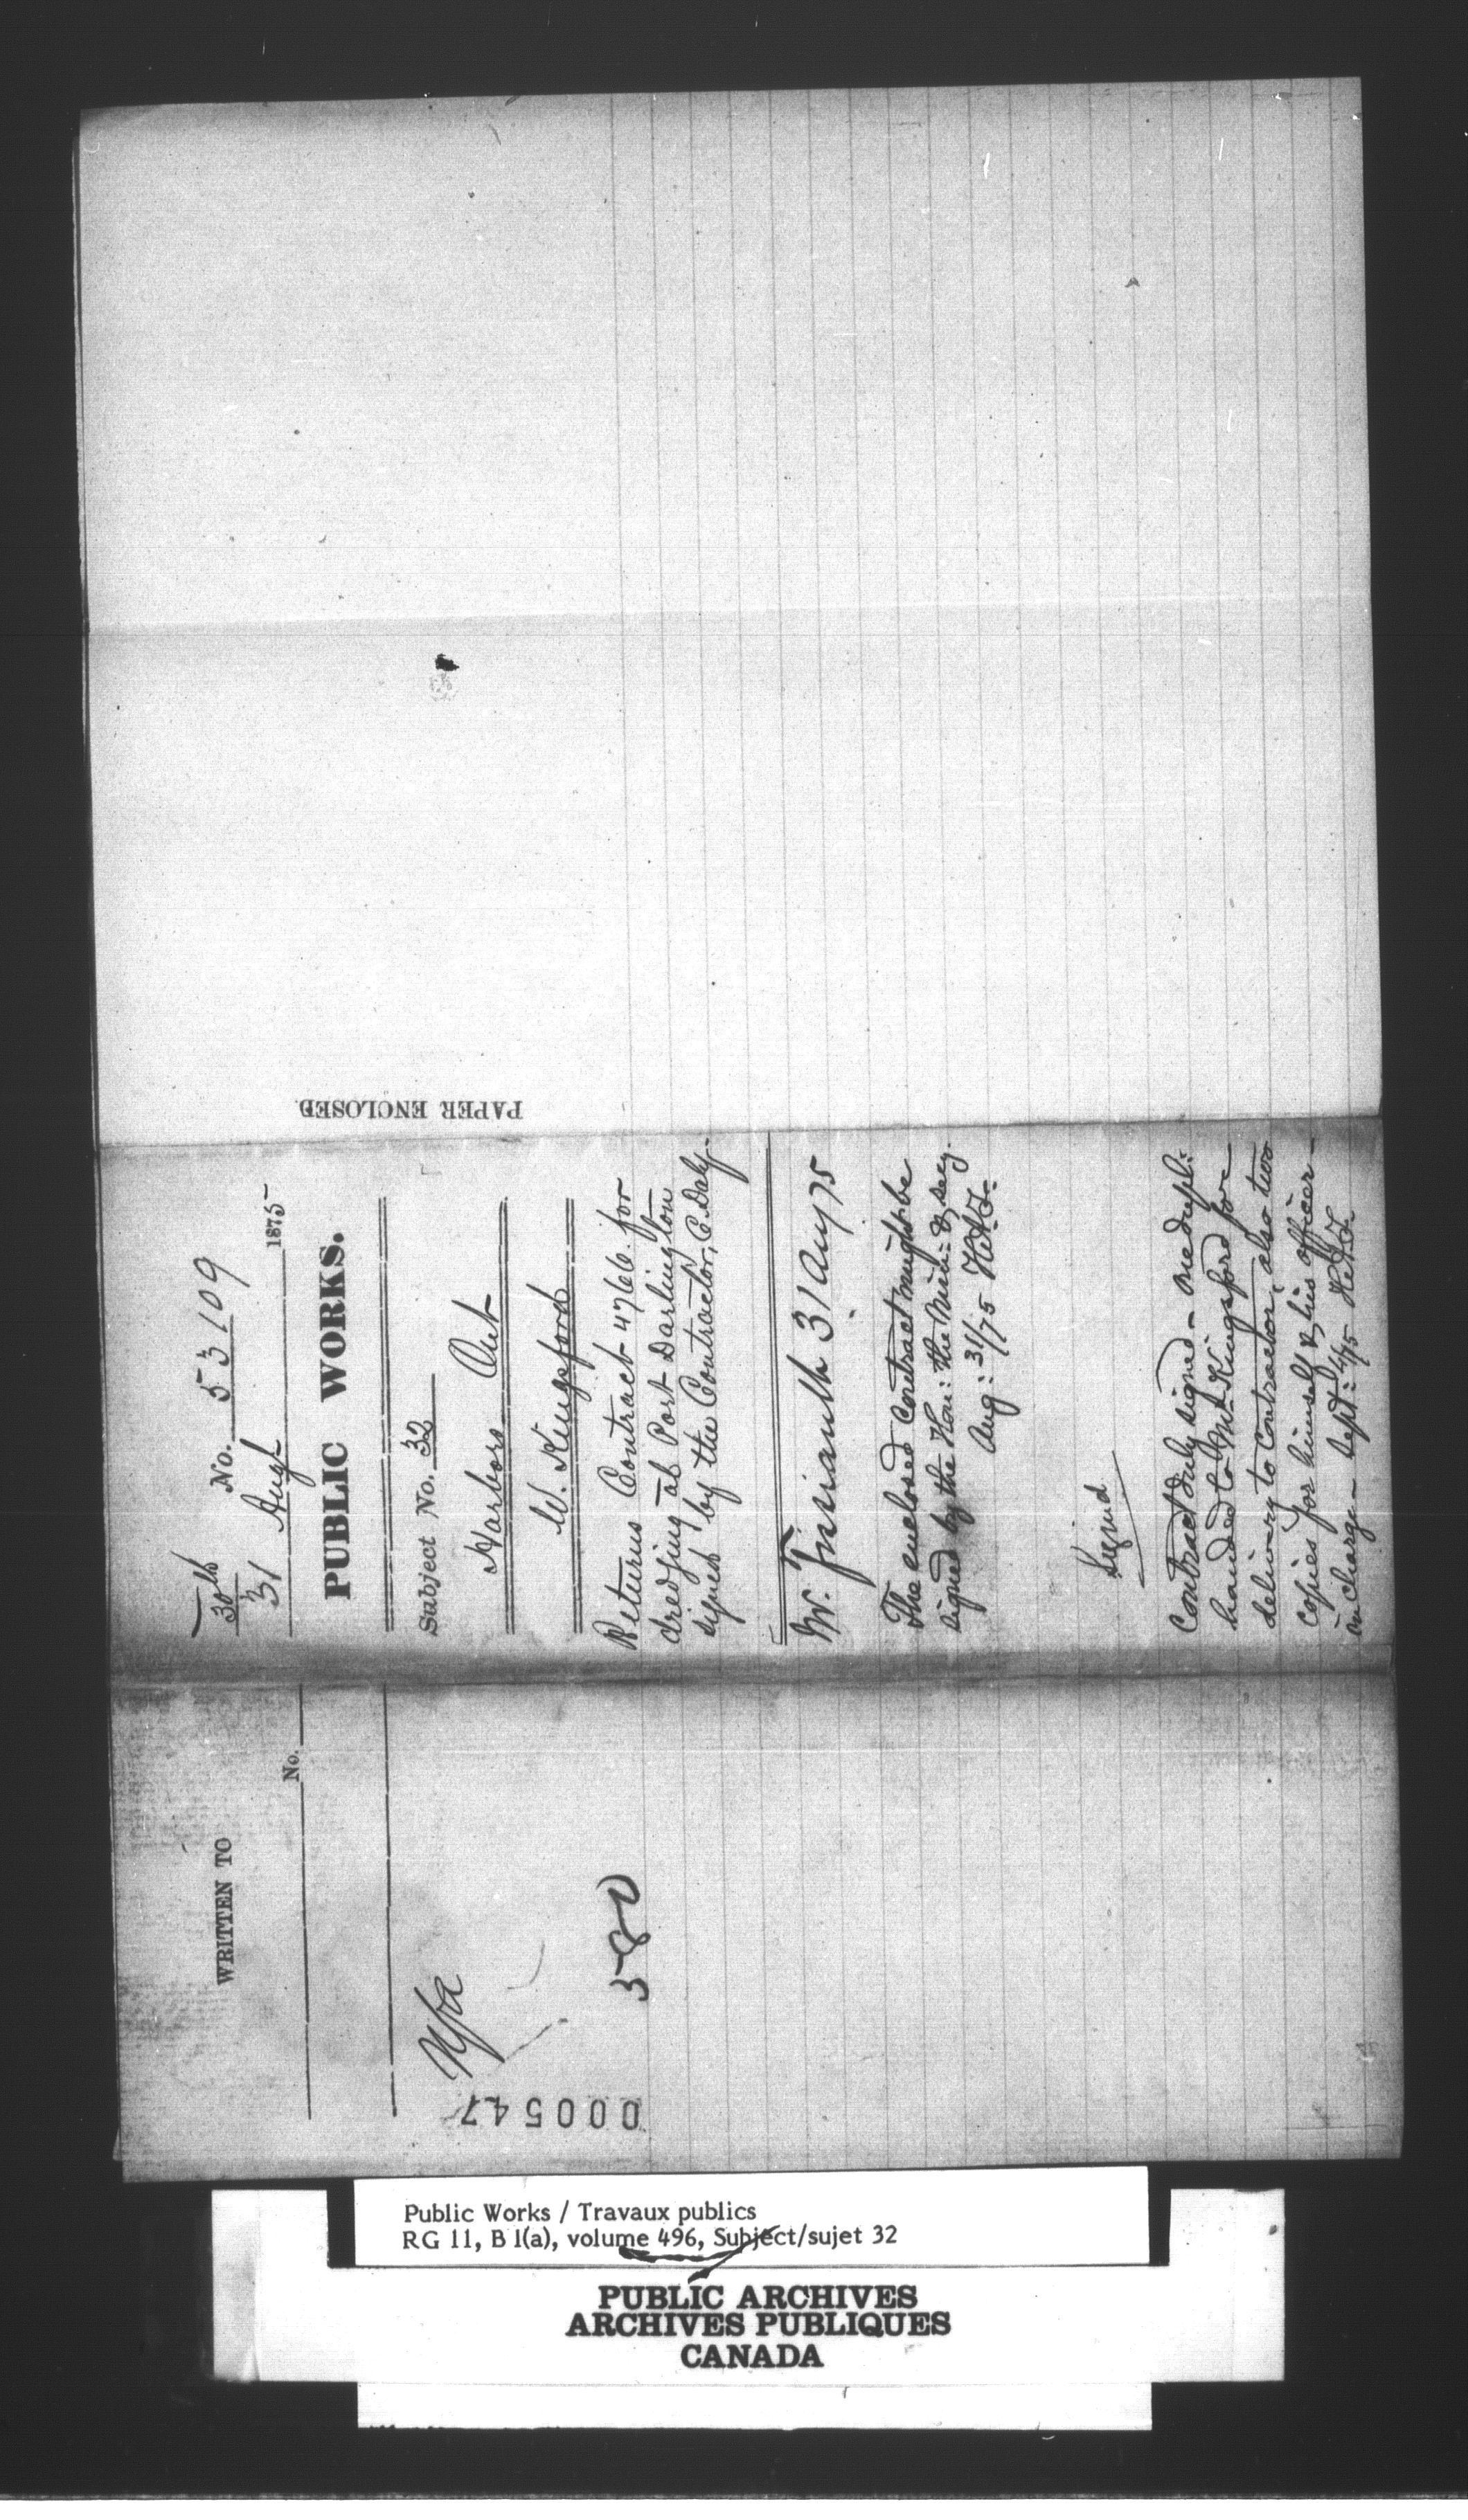 30th
31 Augt 1875
No. 53109
PUBLIC WORKS.
Subject No. 32
Harbors Ont
W. Kingsford
Returns Contract 4766. for
dredging at Port Darlington
signed by the Contractor, C. Daly.
Mr. 31 Aug 75
The enclosed contract might be
signed by the Hon: the Min: & Secy.
Aug: 31/75
Signed
Contract duly signed - one dupl:
handed to Mr. Kingsford for
delivery to Contractor, also two
copies for himself & his officer
in charge - Sept: 4/75
PAPER ENCLOSED.
WRITTEN TO
No.
Nfa
580
000547
Public Works / Travaux publics
RG 11, B 1(a), volume 496, Subject/sujet 32
PUBLIC ARCHIVES
ARCHIVES PUBLIQUES
CANADA